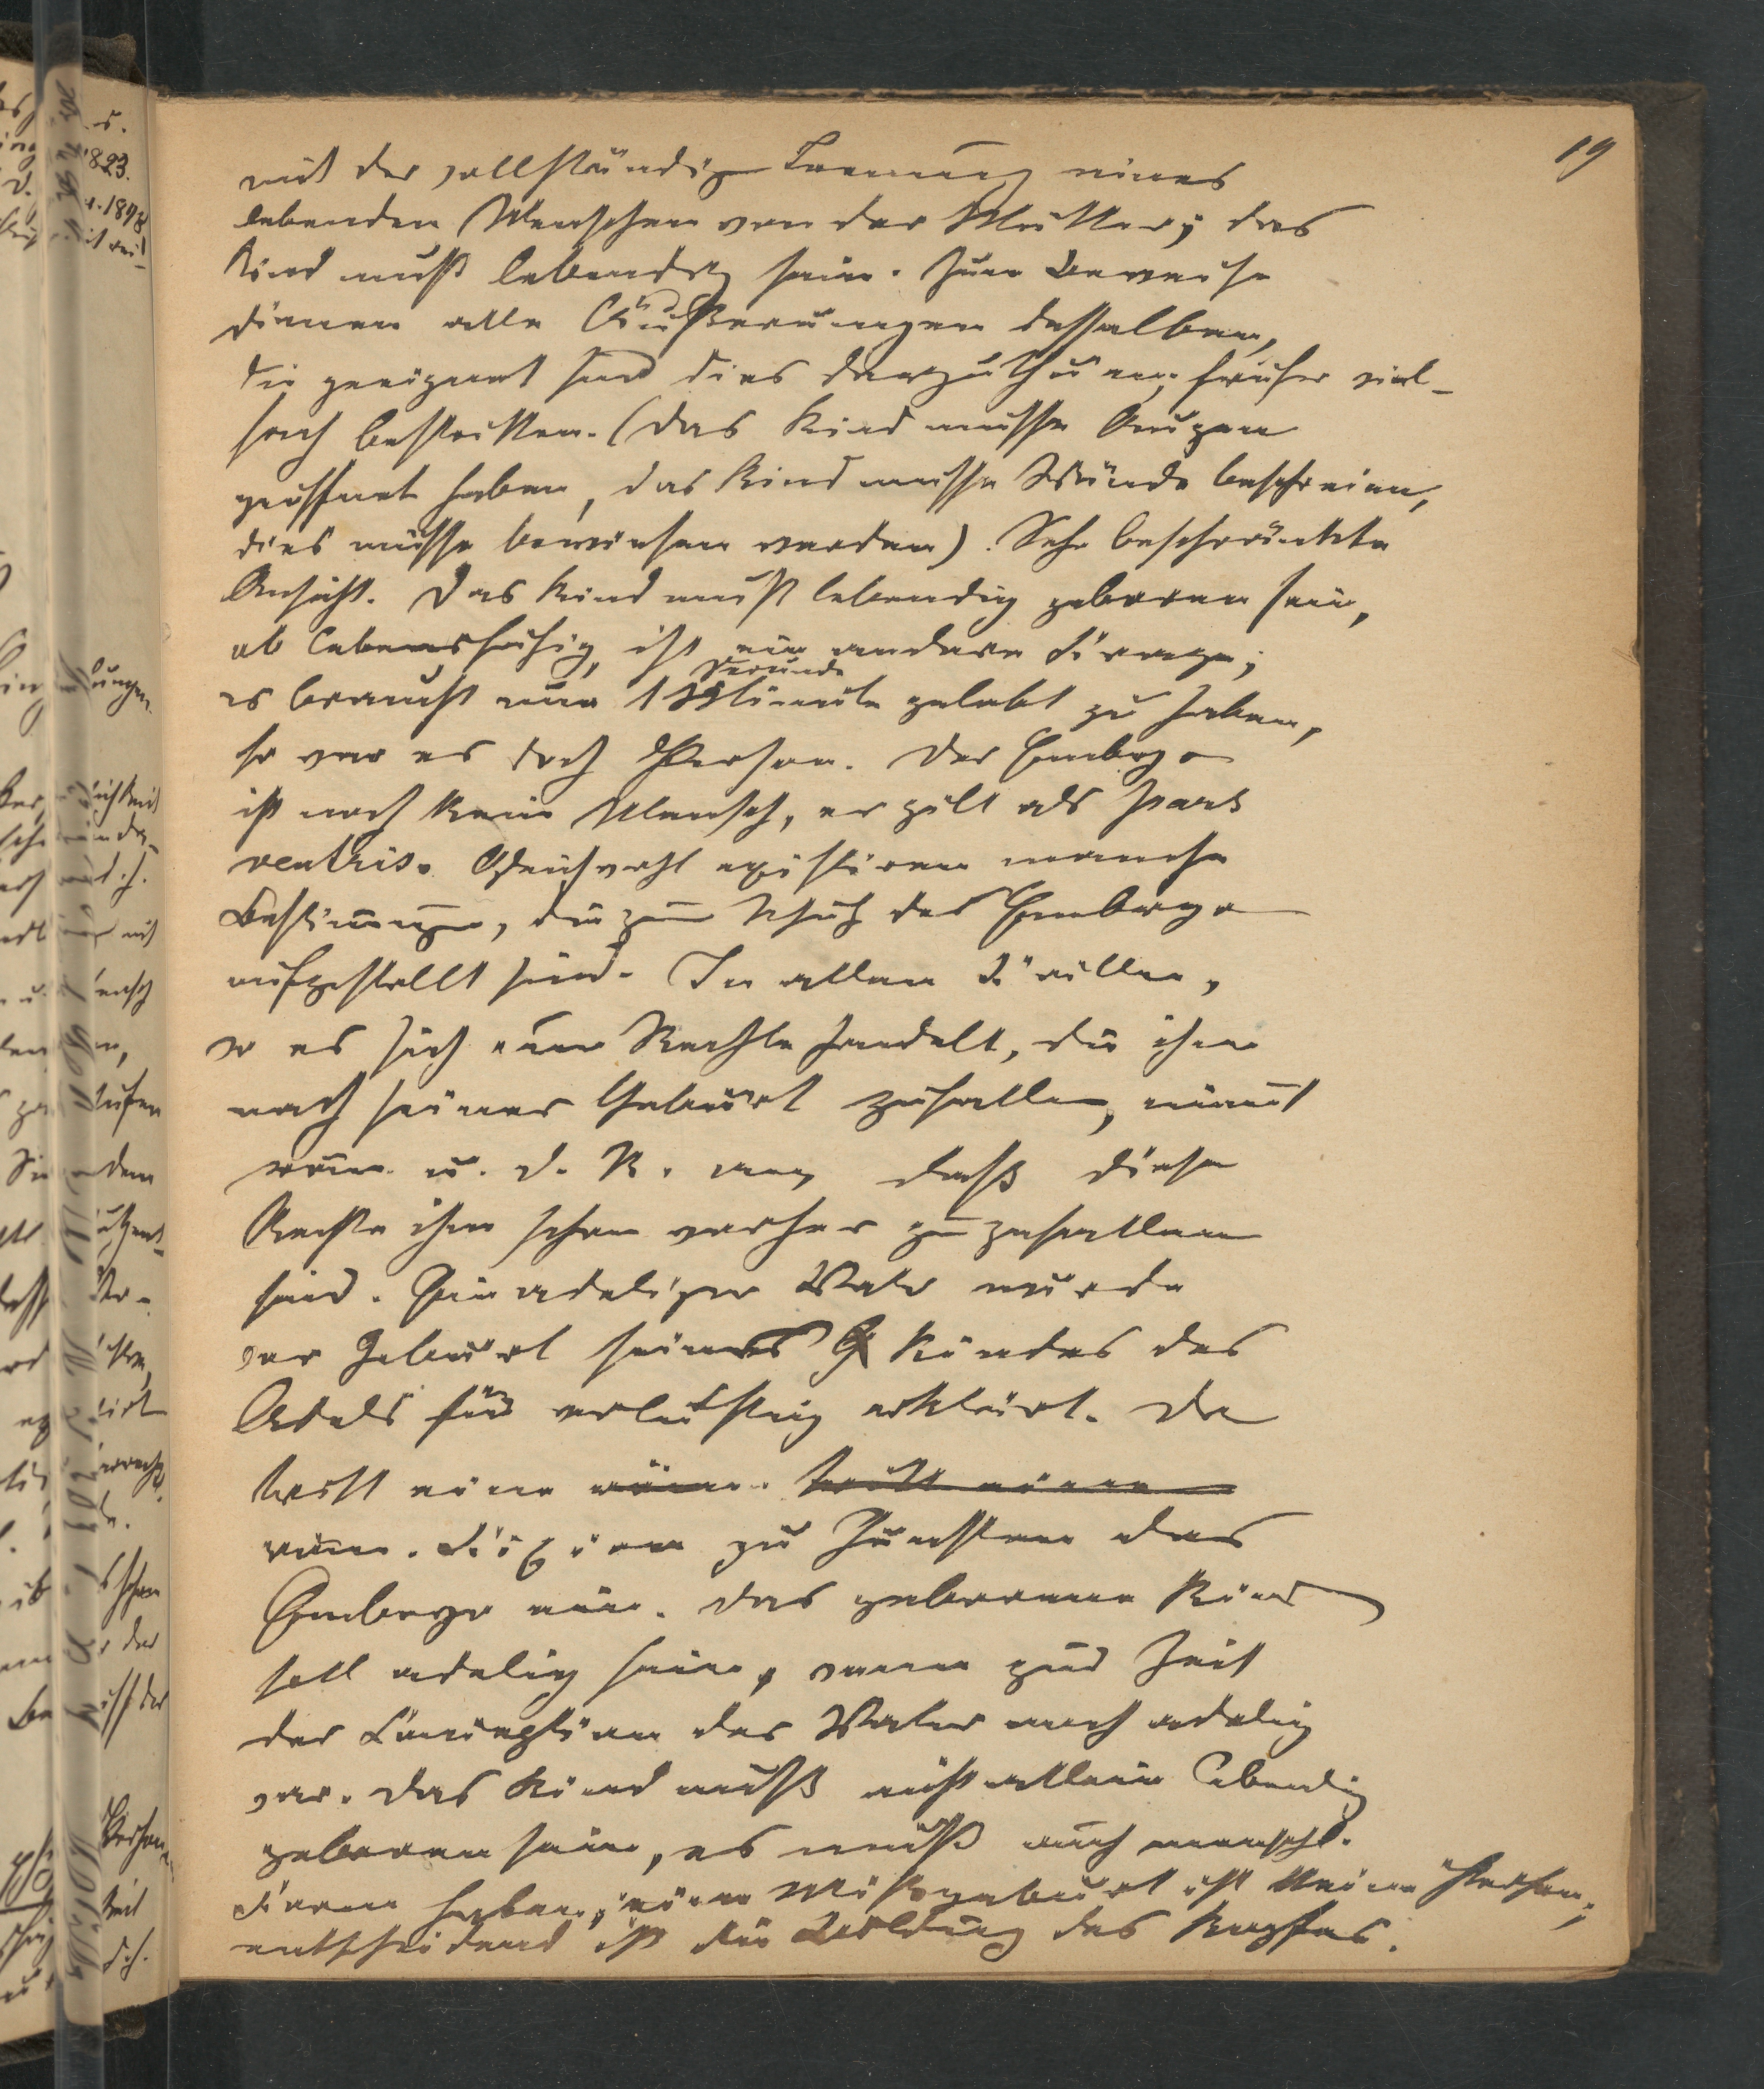 19
mit der vollständigen Trennung eines
lebenden Menschen von der Mutter; das
Kind muß lebendig sein. Zum Beweise
dienen alle Äußerungen desselben,
die geeignet sind dies darzuthun, früher viel-
fach bestritten. (Das Kind müsse Augen
geöffnet haben, das Kind müsse Wände beschreien,
dies müsse bewiesen werden). Sehr beschränkte
Ansicht. Das Kind muß lebendig geboren sein,
ob lebensfähig, ist eine andere Frage;
Sekunde
es braucht nur 1 Minute gelebt zu haben,
so war es doch Person. Der Embryo
ist noch kein Mensch, er gilt als pars
ventris. Gleichwohl existiren manche
Bestimungen, die zum Schutz des Embryo
aufgestellt sind. In allen Fällen,
wo es sich um Rechte handelt, die ihm
nach seiner Geburt zufallen, nimt
röm. u. d. R. an, daß diese
Rechte ihm schon vorher zugefallen
sind. Ein adeliger Vater wurde
vor Geburt seines G Kindes des
Adels für verlustig erklärt. Da
tritt eine röm. tritt eine
röm. Fixion zu Gunsten des
Embryo ein. Das geborene Kind
soll adelig sein, wenn zur Zeit
der Conception der Vater noch adelig
war. Das Kind muß nicht allein lebendig
geboren sein, es muß auch menschl.
Form haben; eine Mißgeburt ist keine Person;
entscheidend ist die Bildung des Kopfes.